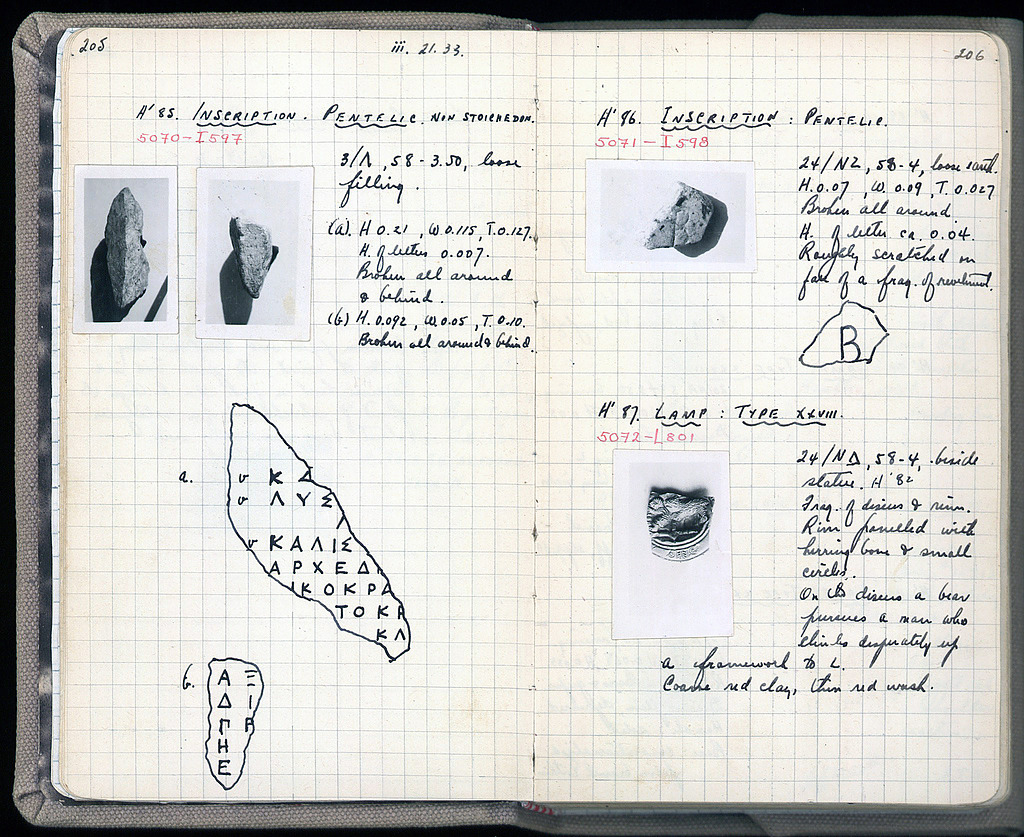 205
iii. 21. 33.
H' 85. INSCRIPTION. PENTELIC. NON STOICHEDON.
5070-I597
3/Λ, 58-3.50, loose
filling.
(a). H 0.21, W. 0.115, T. 0.127.
H. of letters 0.007.
Broken all around
& behind.
(b) H. 0.092, W. 0.05, T. 0.10.
Broken all around & behind.
a.
υ Κ Δ
υ Λ Υ Σ
Λ
υ Κ Α Λ Ι Σ
Α Ρ Χ Ε Δ Ι
Ι Κ Ο Κ Ρ Α
Τ Ο Κ Ρ
Κ Λ
b.
Α Ξ
Δ Ι
Π Ρ
Η
Ε
206
H' 86. INSCRIPTION: PENTELIC.
5071-I598
24/NZ, 58-4, loose earth.
H. 0.07, W. 0.09, T. 0.027
Broken all around.
H. of letter ca. 0.04.
Roughly scratched on
face of a frag. of revetment.
B
H' 87. LAMP: TYPE XXVIII.
5072-L801
24/ΝΔ, 58-4, beside
statue. H' 82
Frag. of discus & rim.
Rim panelled with
herring bone & small
circles.
On the discus a bear
pursues a man who
climbs desperately up
a framework to L.
Coarse red clay, thin red wash.